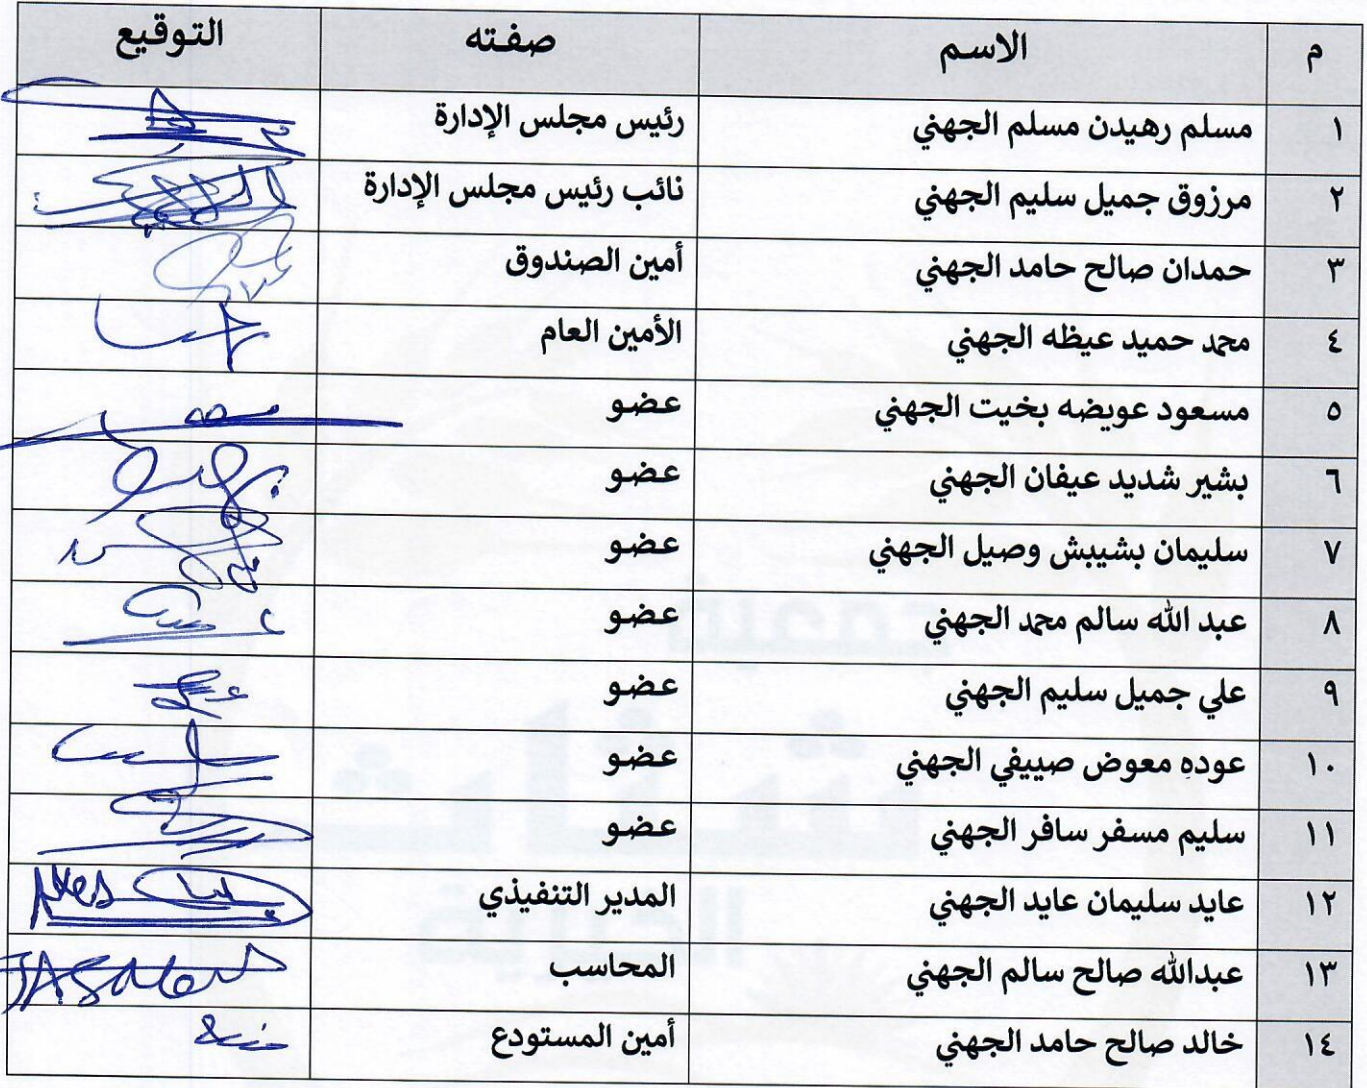 م الاسم صفته التوقيع
١ مسلم رهيدن مسلم الجهني رئيس مجلس الإدارة
٢ مرزوق جميل سليم الجهني نائب رئيس مجلس الإدارة
٣ حمدان صالح حامد الجهني أمين الصندوق
٤ محمد حميد عيظه الجهني الأمين العام
٥ مسعود عويضه بخيت الجهني عضو
٦ بشير شديد عيفان الجهني عضو
٧ سليمان بشيبش وصيل الجهني عضو
٨ عبد الله سالم محمد الجهني عضو
٩ علي جميل سليم الجهني عضو
١٠ عوده معوض صييفي الجهني عضو
١١ سليم مسفر سافر الجهني عضو
١٢ عايد سليمان عايد الجهني المدير التنفيذي
١٣ عبدالله صالح سالم الجهني المحاسب
١٤ خالد صالح حامد الجهني أمين المستودع
جمعية
الخيرية